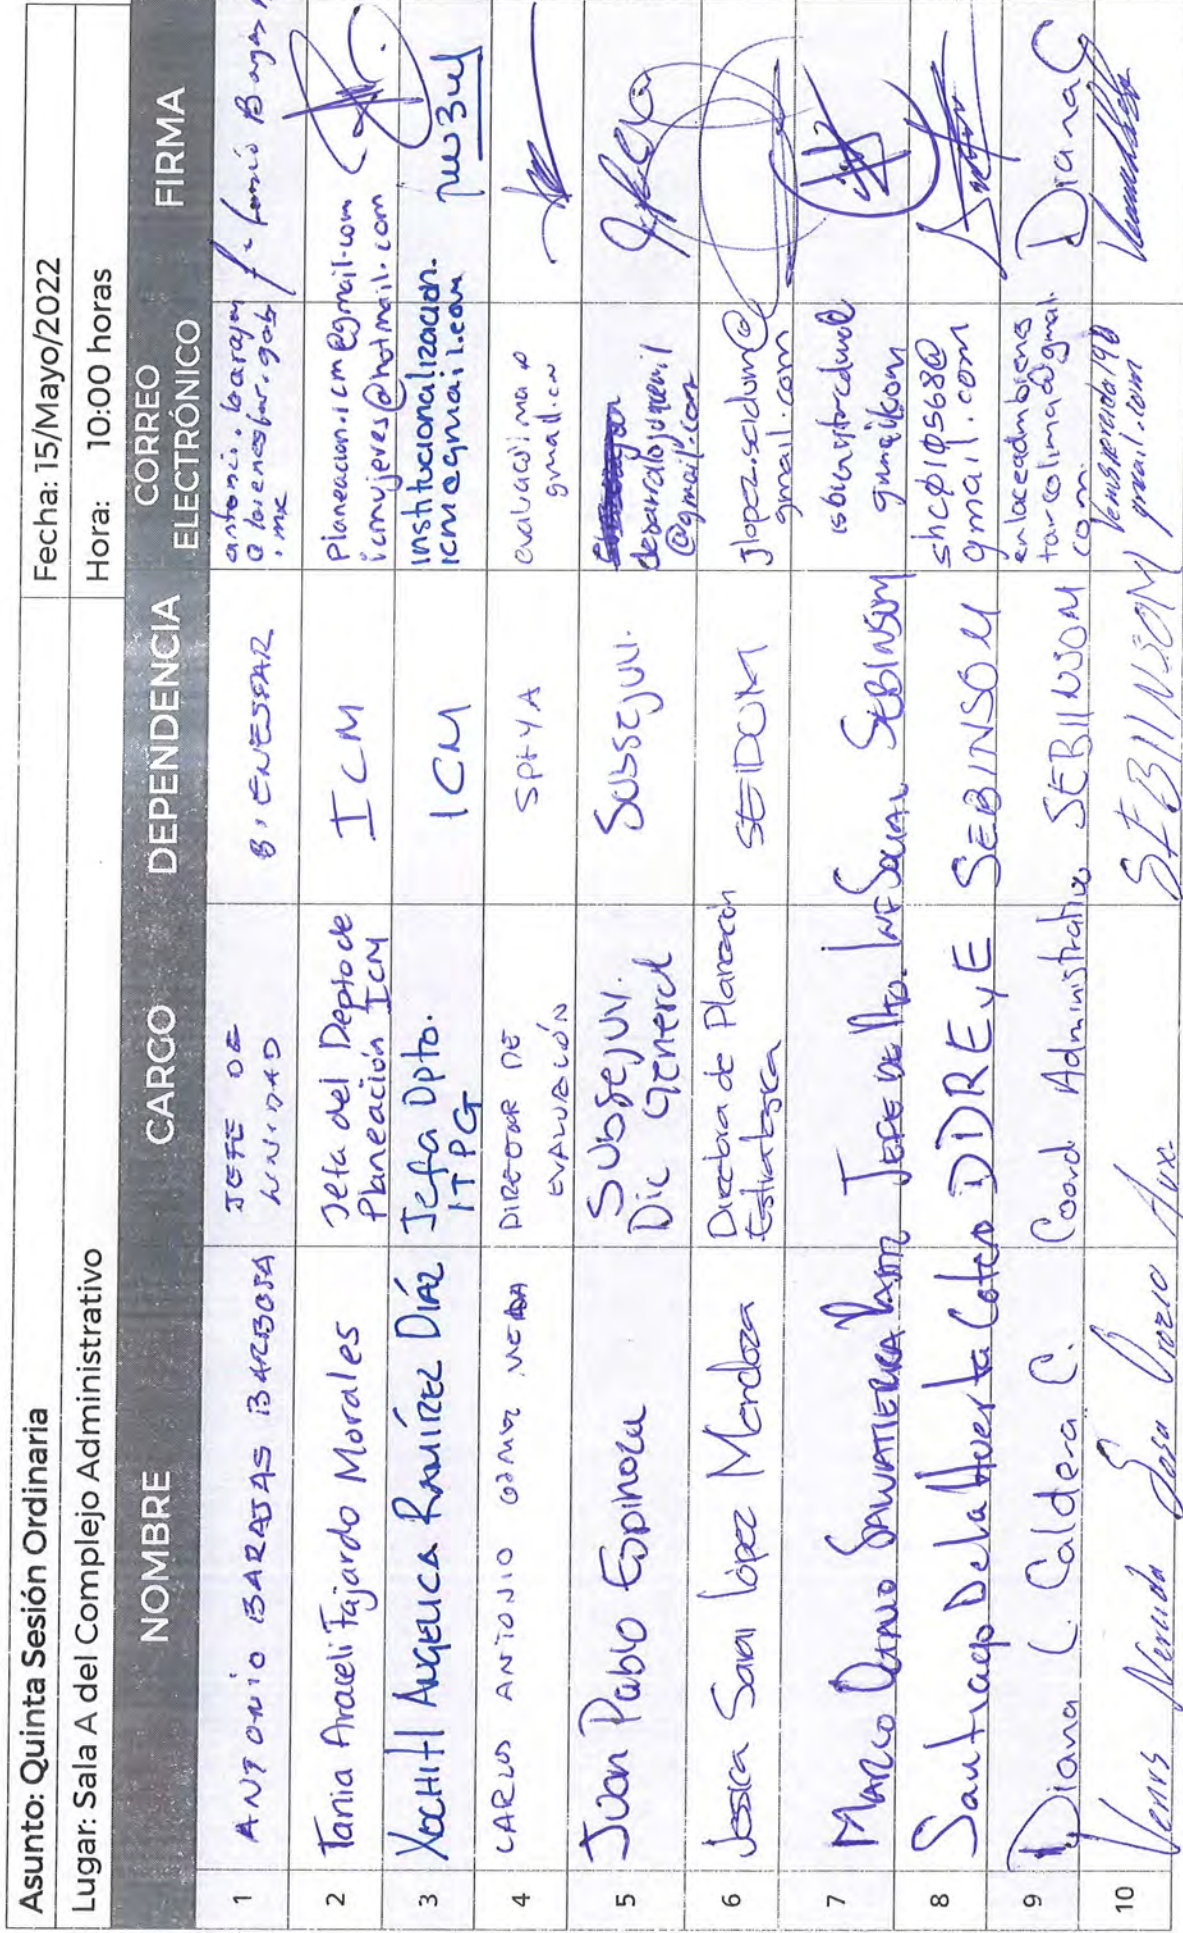 Asunto: Quinta Sesión Ordinaria
Fecha: 15/Mayo/2022
Lugar: Sala A del Complejo Administrativo
Hora: 10:00 horas
NOMBRE CARGO DEPENDENCIA CORREO ELECTRÓNICO FIRMA
1 ANTONIO BARAJAS BARBOSA
JEFE DE
UNIDAD
BIENESTAR
antonio.barajas
@bienestar.gob
.mx
2 Tania Araceli Fajardo Morales
Jefa del Depto de
Planeación ICM
ICM
Planeacion.icm@gmail.com
icmujeres@hotmail.com
3 XOCHITL ANGELICA RAMÍREZ DÍAZ
Jefa Dpto.
ITPG
ICM
institucionalizacion.
icm@gmail.com
4 CARLOS ANTONIO
DIRECTOR DE
EVALUACIÓN
SPFYA
gmail.com
5 Juan Pablo Espinoza
Subsejuv.
Dic General
Subsejuv.
desarrollojuvenil
@gmail.com
6 Jessica Sarai López Mendoza
Directora de Planeación
Estratégica
SEIDUM
jlopez.seidum@
gmail.com
7 MARCO
JEFE DE DPTO. INF SOCIAL
SEBINSOM
8 Santiago De la Huerta Cotero
DDREyE
SEBINSOM
shc010568@
gmail.com
9 Diana C. Caldera C.
Coord Administrativo
SEBIINSOM
enlaceadmbienes
tarcolima@gmail.
com
Diana C
10 Venus Neruda Sosa Orozco
Aux.
SEBIINSOM
gmail.com